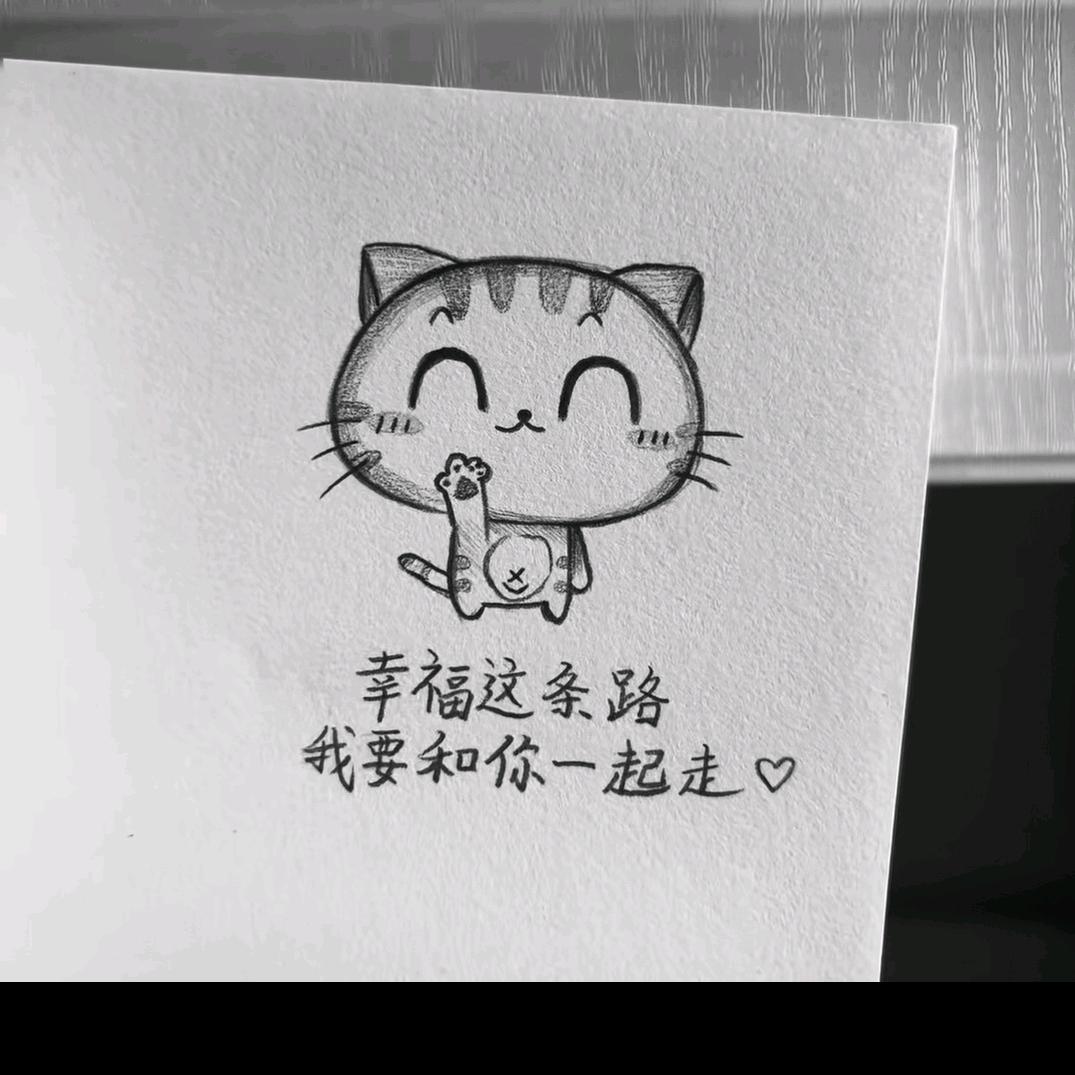 幸福这条路
我要和你一起走♡